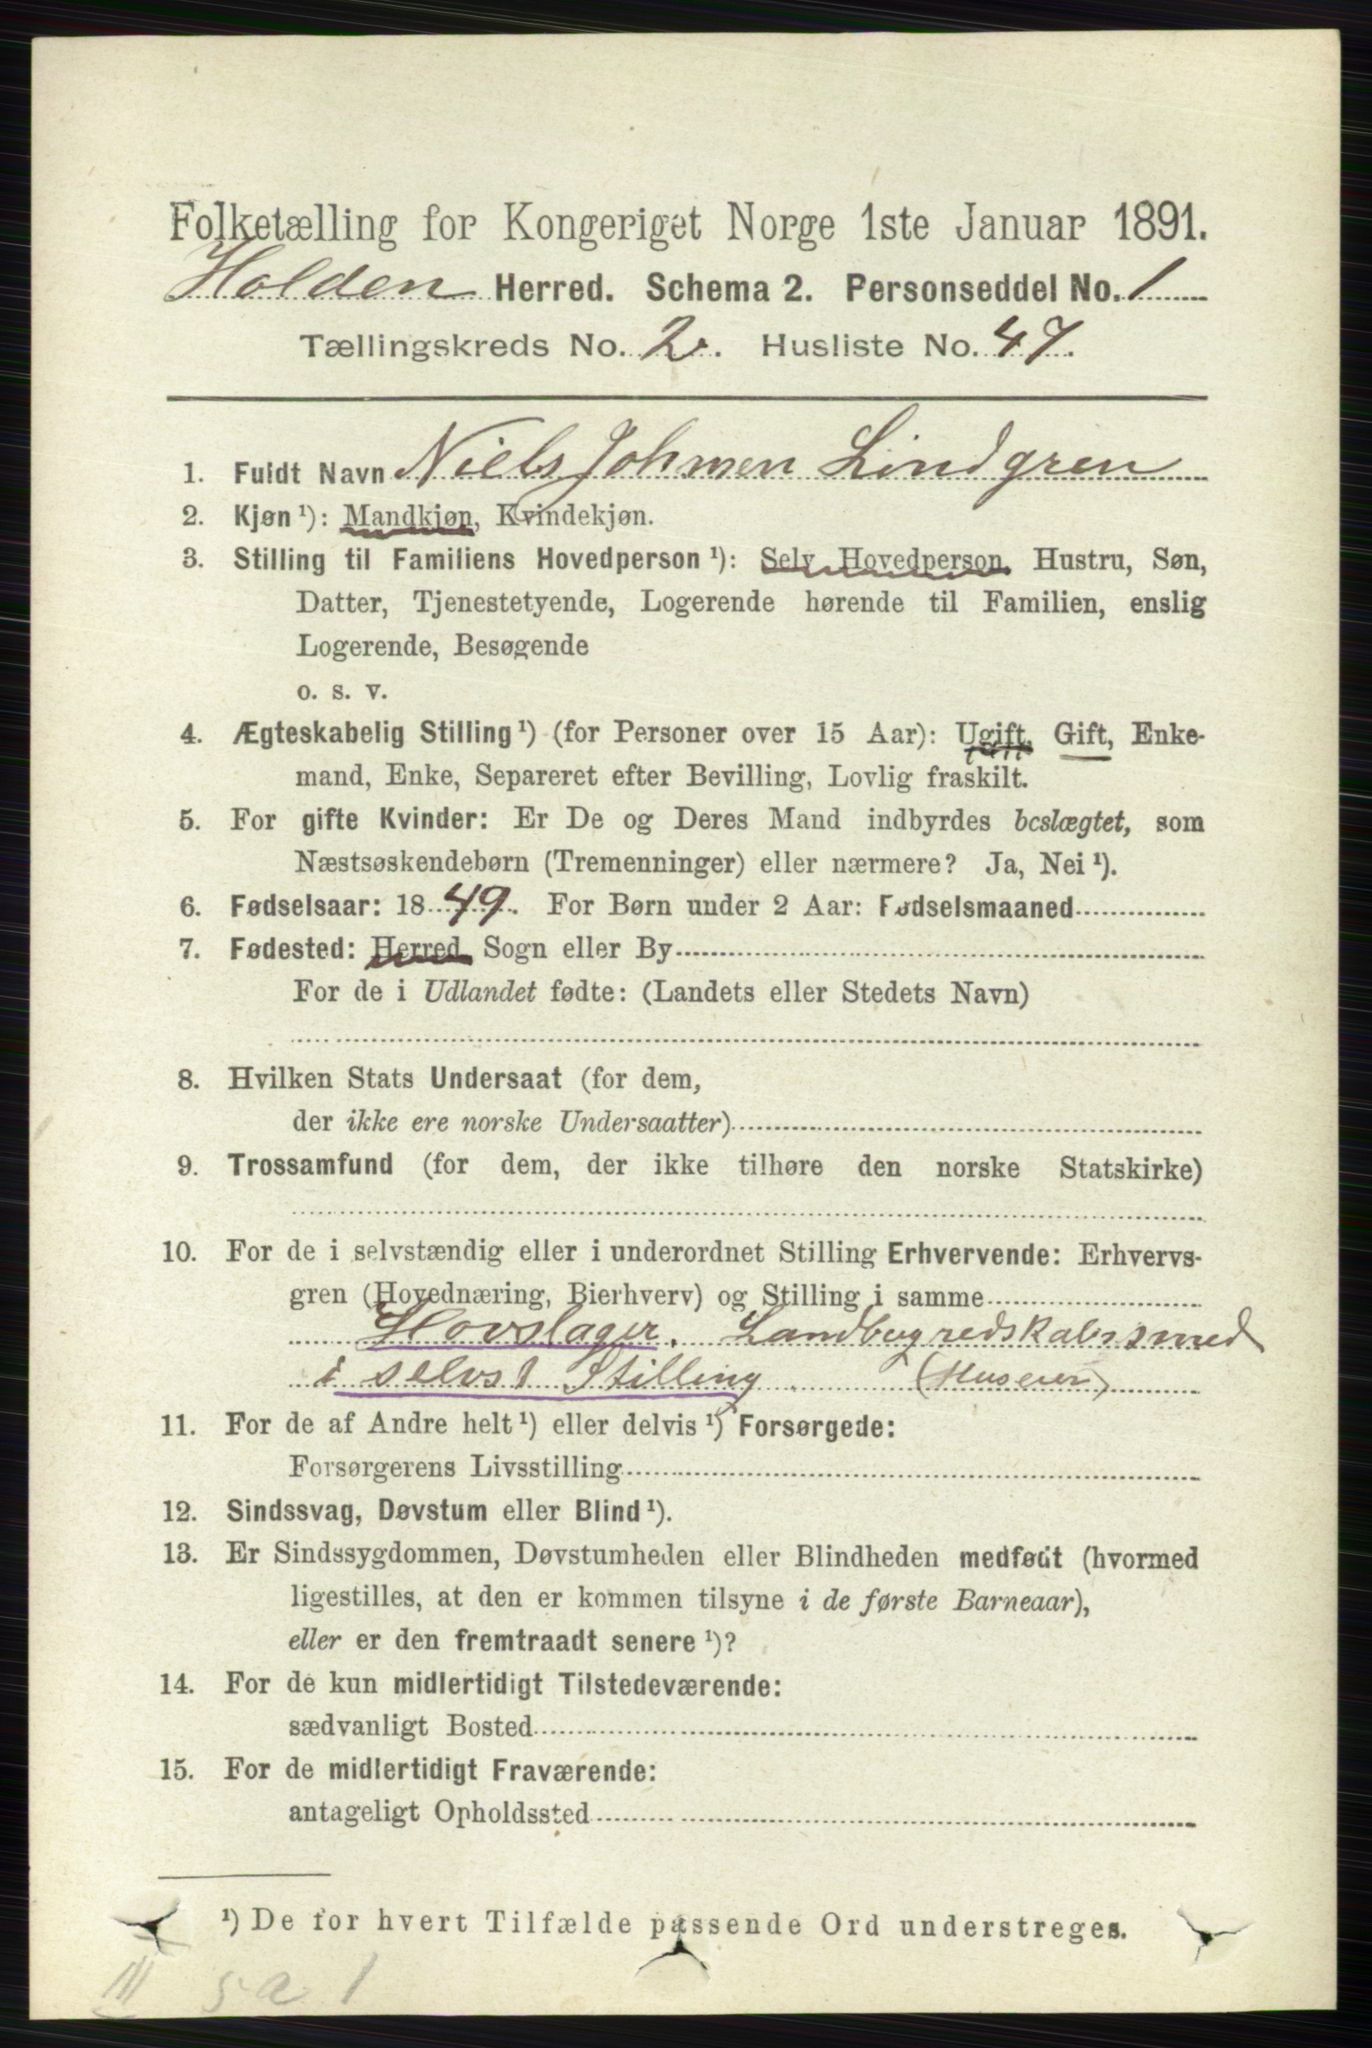 Folketælling for Kongeriget Norge 1ste Januar 1891.
Holden Herred. Schema 2. Personseddel No. 1
Tællingskreds No. 2. Husliste No. 47.
1. Fuldt Navn Niels Johnsen Lindgren
2. Kjøn ¹): Mandkjøn, Kvindekjøn.
3. Stilling til Familiens Hovedperson ¹): Selv Hovedperson, Hustru, Søn,
Datter, Tjenestetyende, Logerende hørende til Familien, enslig
Logerende, Besøgende
o. s. v.
4. Ægteskabelig Stilling ¹) (for Personer over 15 Aar): Ugift, Gift, Enke-
mand, Enke, Separeret efter Bevilling, Lovlig fraskilt.
5. For gifte Kvinder: Er De og Deres Mand indbyrdes beslægtet, som
Næstsøskendebørn (Tremenninger) eller nærmere? Ja, Nei ¹).
6. Fødselsaar: 1849. For Børn under 2 Aar: Fødselsmaaned
7. Fødested: Herred, Sogn eller By
For de i Udlandet fødte: (Landets eller Stedets Navn)
8. Hvilken Stats Undersaat (for dem,
der ikke ere norske Undersaatter)
9. Trossamfund (for dem, der ikke tilhøre den norske Statskirke)
10. For de i selvstændig eller i underordnet Stilling Erhvervende: Erhvervs-
gren (Hovednæring, Bierhverv) og Stilling i samme
Hovslager. Landbugredskabssmed
i selvst Stilling (Huseier)
11. For de af Andre helt ¹) eller delvis ¹) Forsørgede:
Forsørgerens Livsstilling
12. Sindssvag, Døvstum eller Blind ¹).
13. Er Sindssygdommen, Døvstumheden eller Blindheden medfødt (hvormed
ligestilles, at den er kommen tilsyne i de første Barneaar),
eller er den fremtraadt senere ¹)?
14. For de kun midlertidigt Tilstedeværende:
sædvanligt Bosted
15. For de midlertidigt Fraværende:
antageligt Opholdssted
¹) De for hvert Tilfælde passende Ord understreges.
III 5 a 1